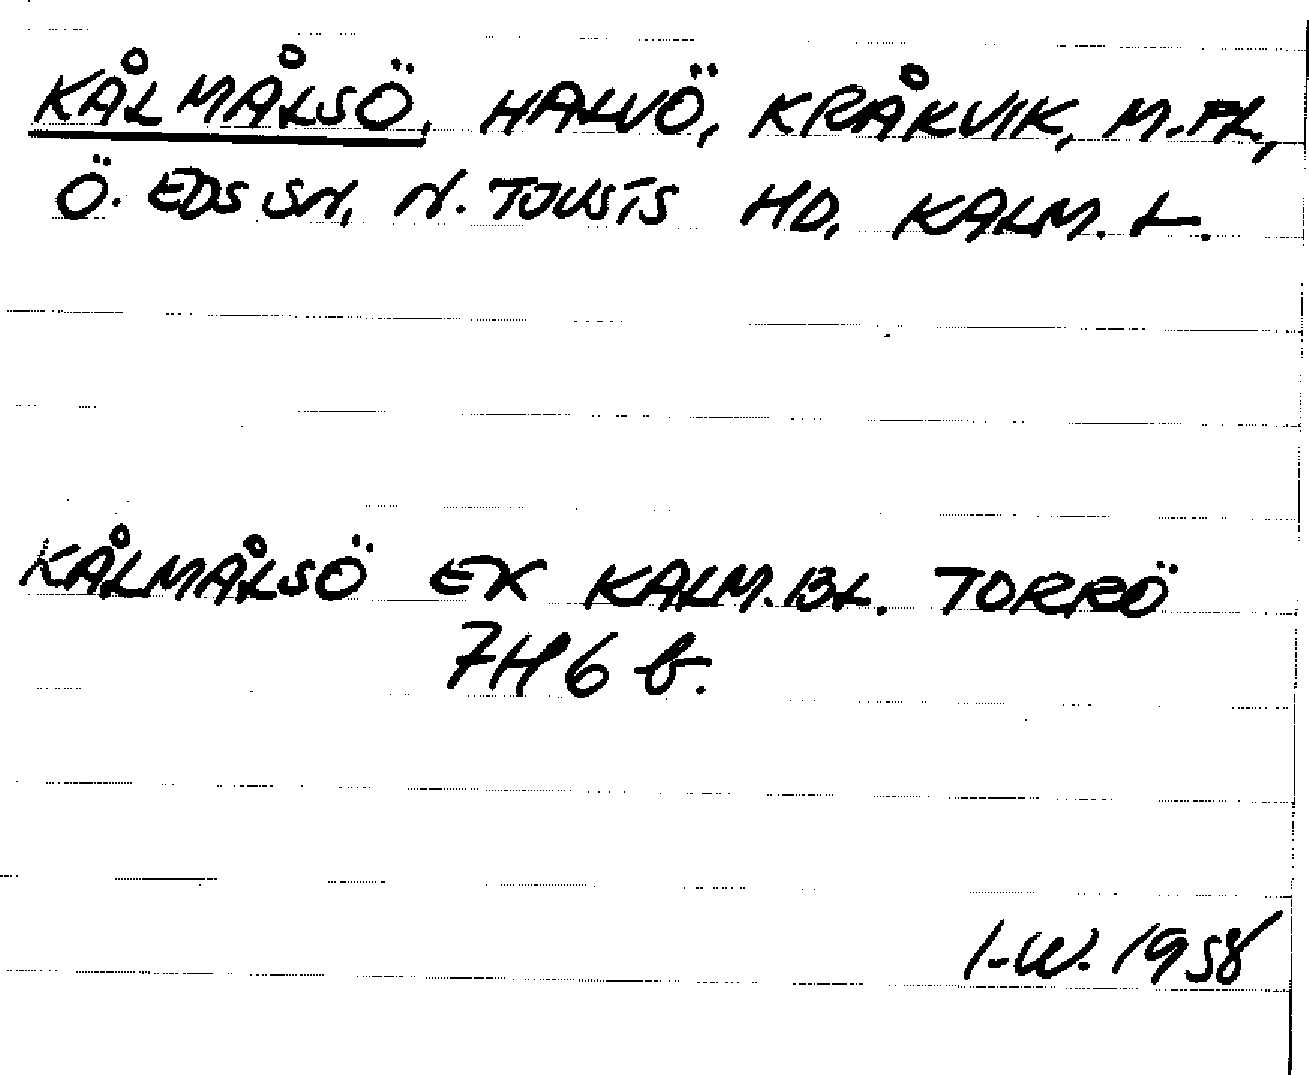 KÅLMÅLSÖ, HALVÖ, KRÅKVIK, M.FL.,
Ö. EDS SN, N. TJUSTS HD, KALM. L.
KÅLMÅLSÖ EK KALM.BL. TORRÖ
7H6 b.
I-W. 1958